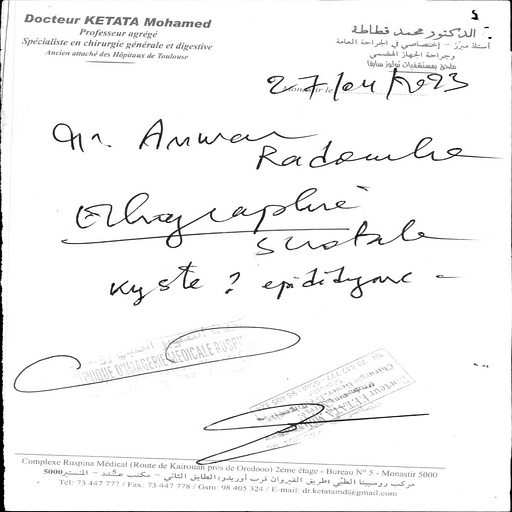 Docteur KETATA Mohamed
Professeur agrégé
Spécialiste en chirurgie générale et digestive
Ancien attaché des Hôpitaux de Toulouse
الدكتور محمد قطاطة
أستاذ مبرّز - إختصاصي في الجراحة العامة
وجراحة الجهاز الهضمي
ملحق بمستشفيات تولوز سابقا
Monastir le 27/04/2023
Mr. Anwar
Echographie
scrotale
Kyste ? epididyme -
D'IMAGERIE MEDICALE RUSPINA
Complexe Ruspina Médical (Route de Kairouan près de Oredooo) 2ème étage - Bureau N° 5 - Monastir 5000
مركب روسبينا الطبّي (طريق القيروان قرب أوريدو) الطابق الثاني - مكتب عـ5ـدد - المنستير 5000
Tél: 73 447 777 / Fax: 73 447 778 / Gsm: 98 405 324 / E-mail: dr.ketatamd@gmail.com